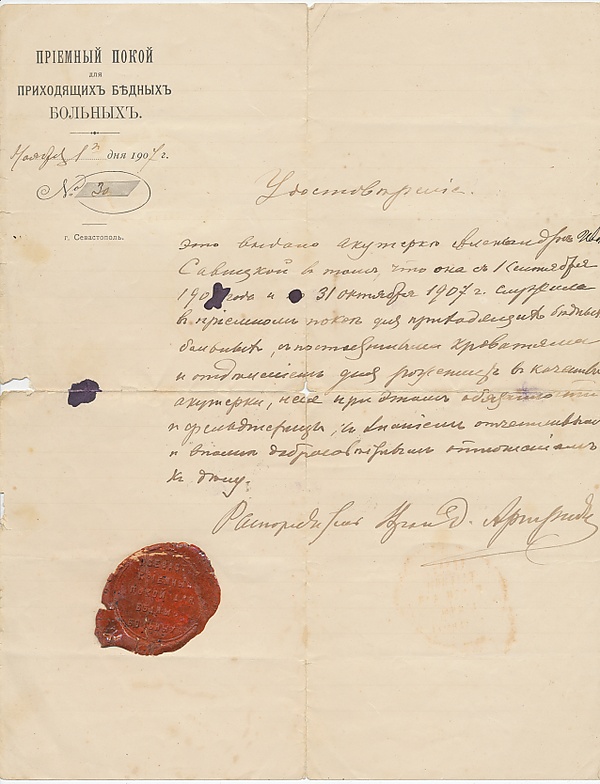 ПРІЕМНЫЙ ПОКОЙ
для
ПРИХОДЯЩИХЪ БѢДНЫХЪ
БОЛЬНЫХЪ.
Ноября 1 дня 1907 г.
№ 30
г. Севастополь.
Удостовѣреніе.
это выдано акушеркѣ Александрѣ
Савицкой въ томъ, что она съ 1 Сентября
190 года и 31 октября 1907 г. служила
въ пріемномъ покоѣ для приходящихъ бѣдныхъ
больныхъ, съ постоянными кроватями
и отдѣленіемъ для роженицъ въ качествѣ
акушерки, неся при этомъ обязанности
и фельдшерицы, съ знаніемъ
и вполнѣ добросовѣстнымъ отношеніемъ
къ дѣлу.
ПОКОЙ ДЛЯ
БѢДНЫХ
БОЛЬНЫХ